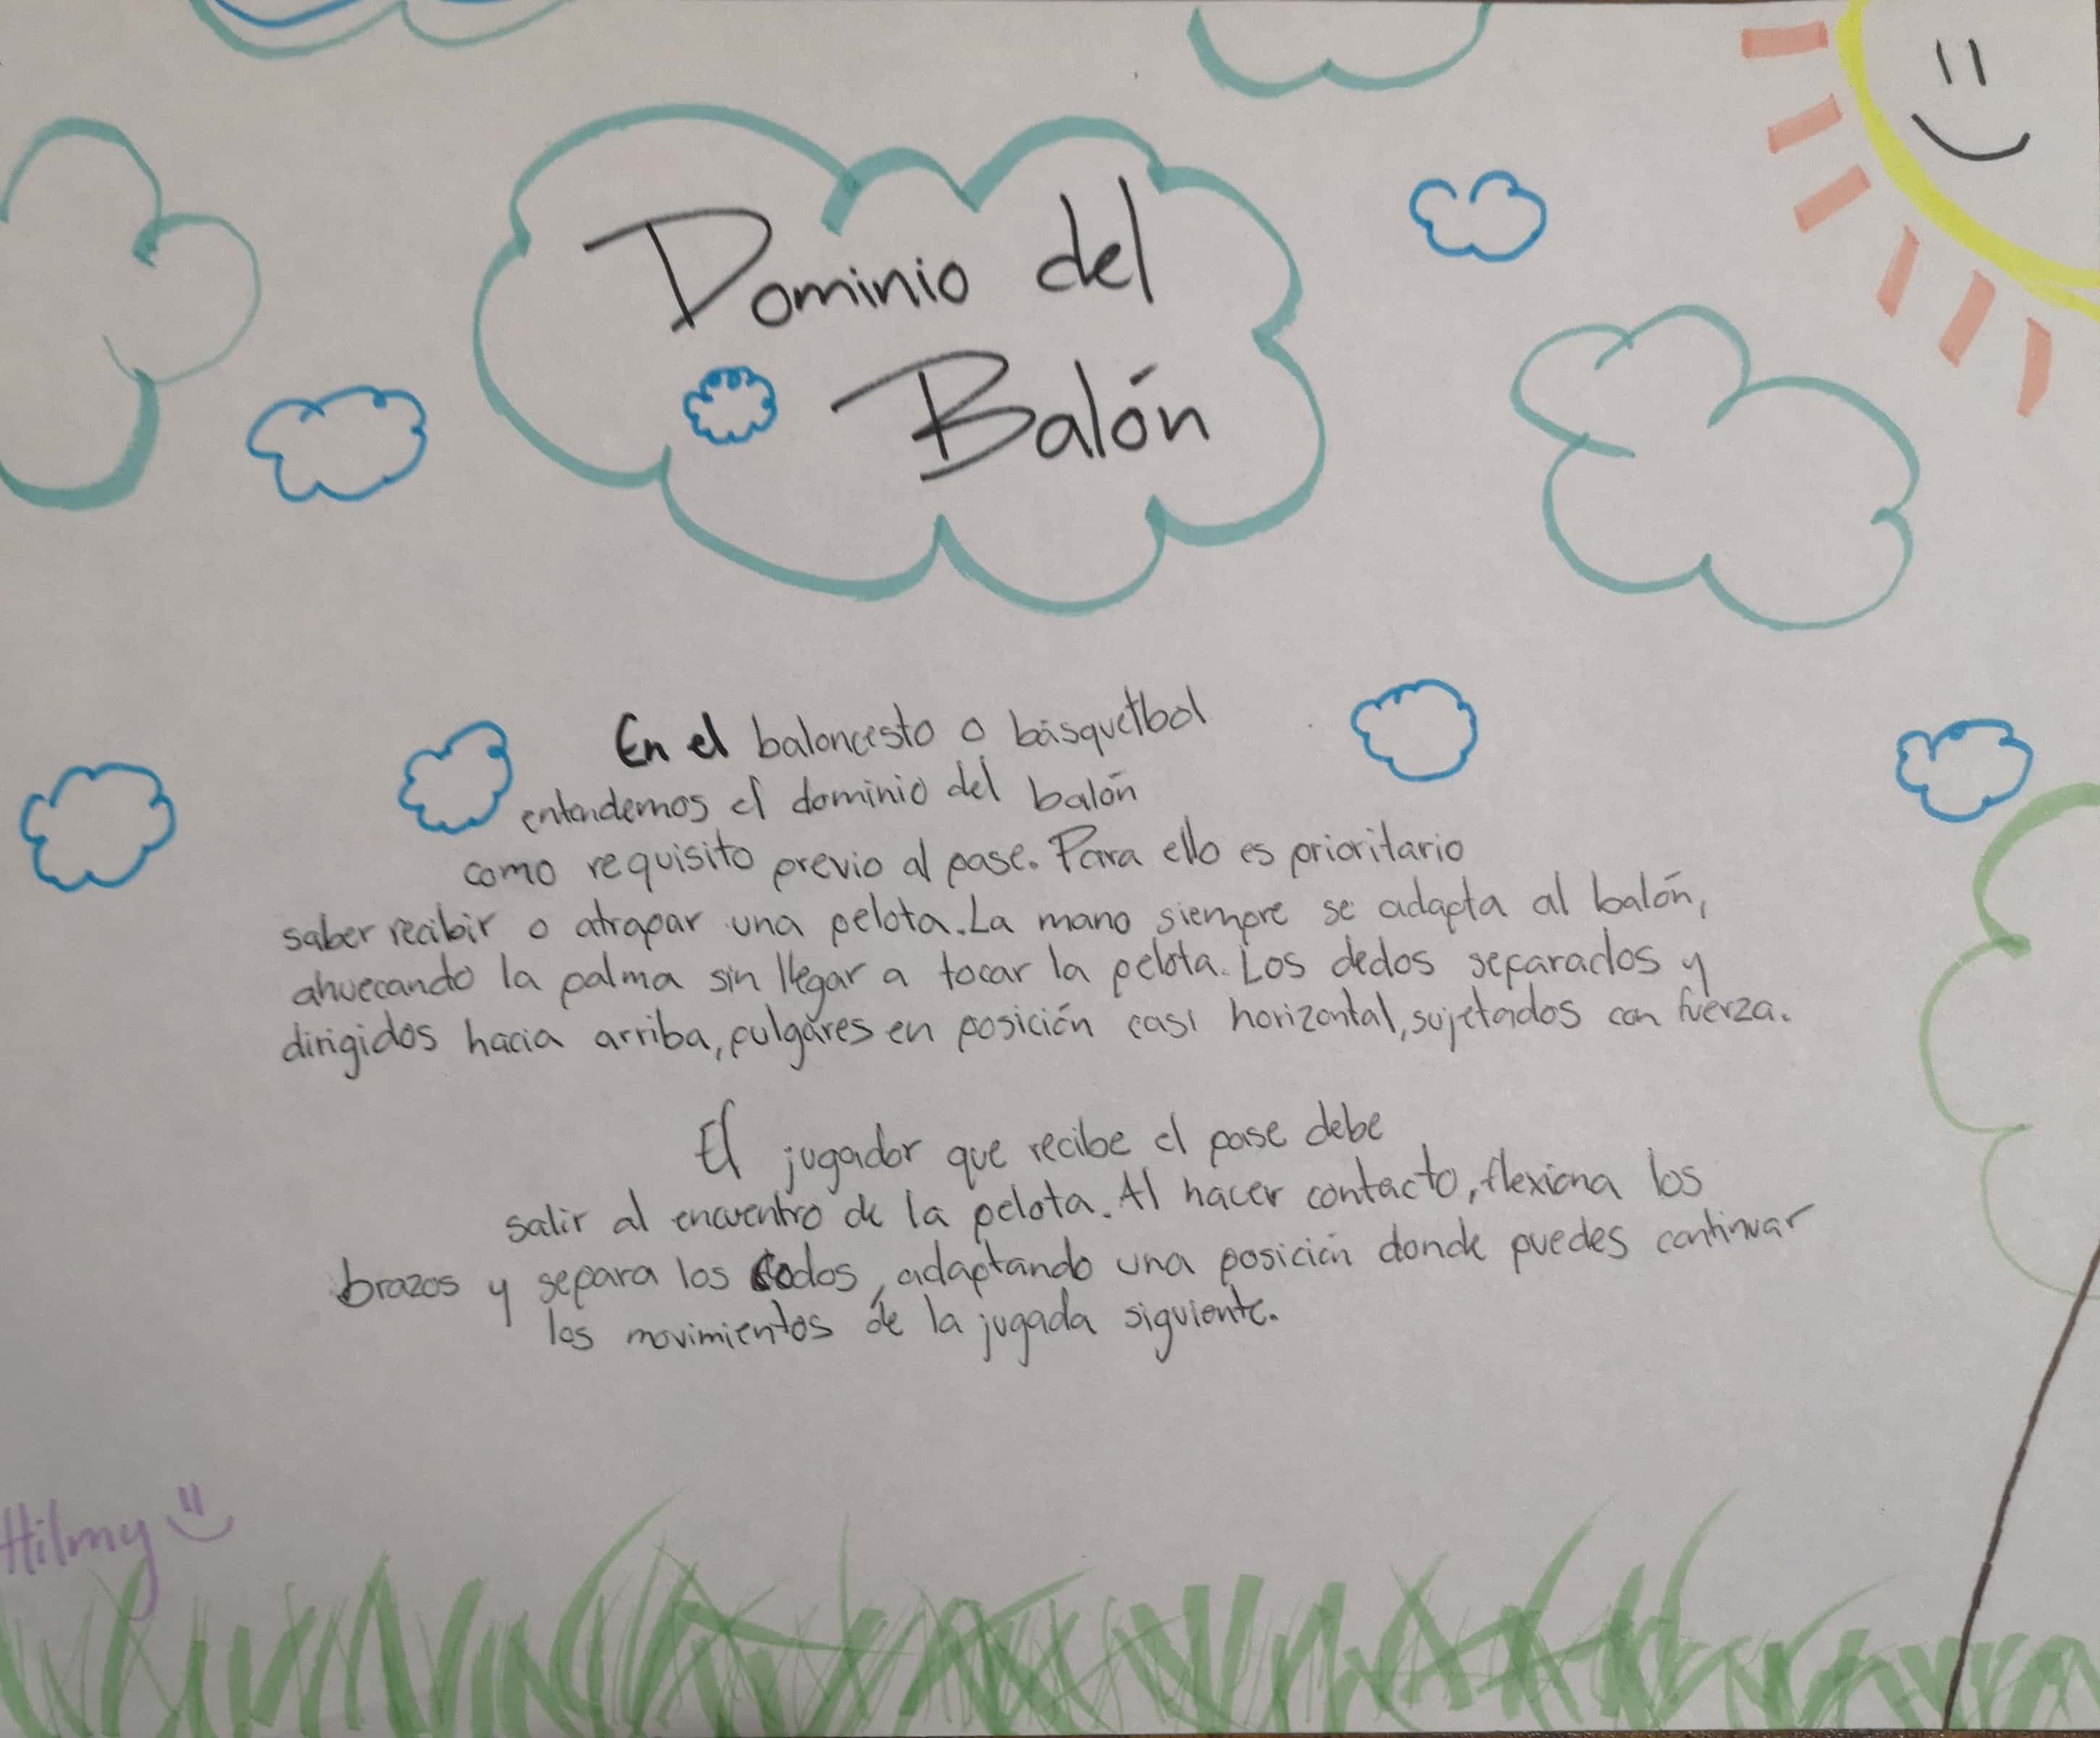 Dominio del
Balón
En el baloncesto o básquetbol
entendemos el dominio del balón
como requisito previo al pase. Para ello es prioritario
saber recibir o atrapar una pelota. La mano siempre se adapta al balón,
ahuecando la palma sin llegar a tocar la pelota. Los dedos separados y
dirigidos hacia arriba, pulgares en posición casi horizontal, sujetados con fuerza.
El jugador que recibe el pase debe
salir al encuentro de la pelota. Al hacer contacto, flexiona los
brazos y separa los codos, adaptando una posición donde puedes continuar
los movimientos de la jugada siguiente.
Hilmy